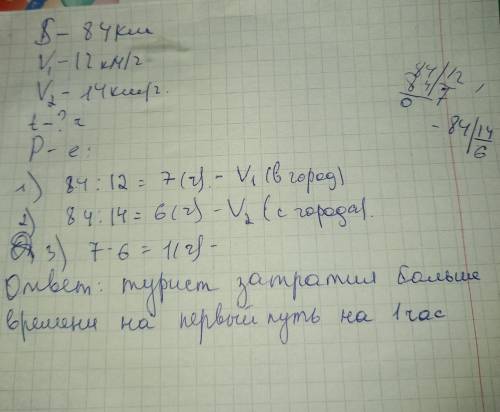 S - 84 км
V₁ - 12 км/ч
V₂ - 14 км/ч.
t - ? ч
Р - е:
1) 84 : 12 = 7 (ч). - V₁ (в город)
2) 84 : 14 = 6 (ч) - V₂ (с города).
3) 7 - 6 = 1 (ч) -
Ответ: турист затратил больше
времени на первый путь на 1 час
84/12
84/7
0
- 84/14
6